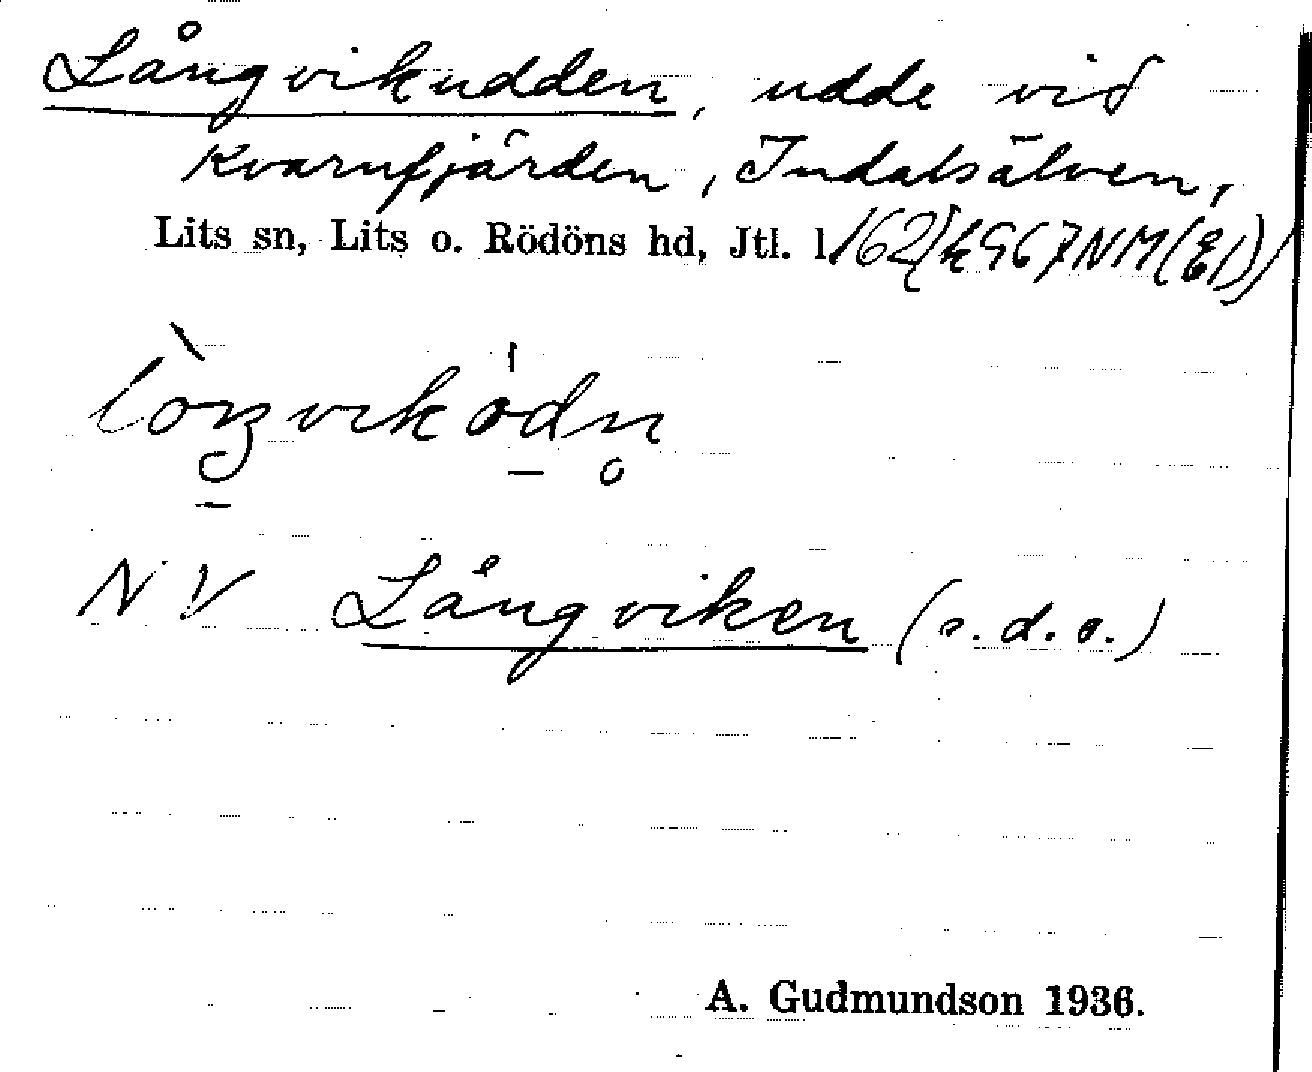 Långvikudden, udde vid
Kvarnfjärden, Indalsälven,
Lits sn, Lits o. Rödöns hd, Jtl. l.
NV Långviken (s.d.o.)
A. Gudmundson 1936.